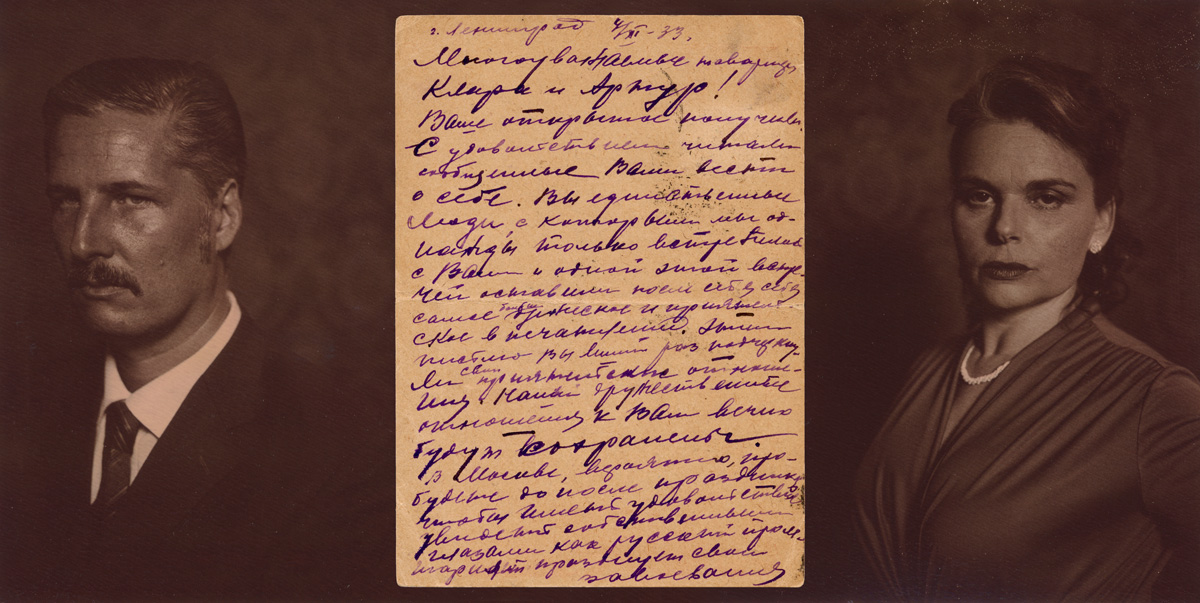 г. Ленинград 4/XI-33.
Многоуважаемые товарищи
Клара и Артур!
Ваше открытое получили.
С удовольствием читали
сообщенные Вами вести
о себе. Вы единственные
люди, с которыми мы од-
нажды только встретились
с Вами и одной этой встре-
чей оставили после себя
самое дружеское и приятель-
ское впечатление. Этим
письмо Вы лишний раз подчеркну-
ли свои приятельские отноше-
ния и наши дружественные
отношения к Вам вечно
будут сохранены.
В Москве, вероятно, про-
будете до после праздников
чтобы иметь удовольствие
увидеть собственными
глазами как русский проле-
тариат празднует свои
завоевания